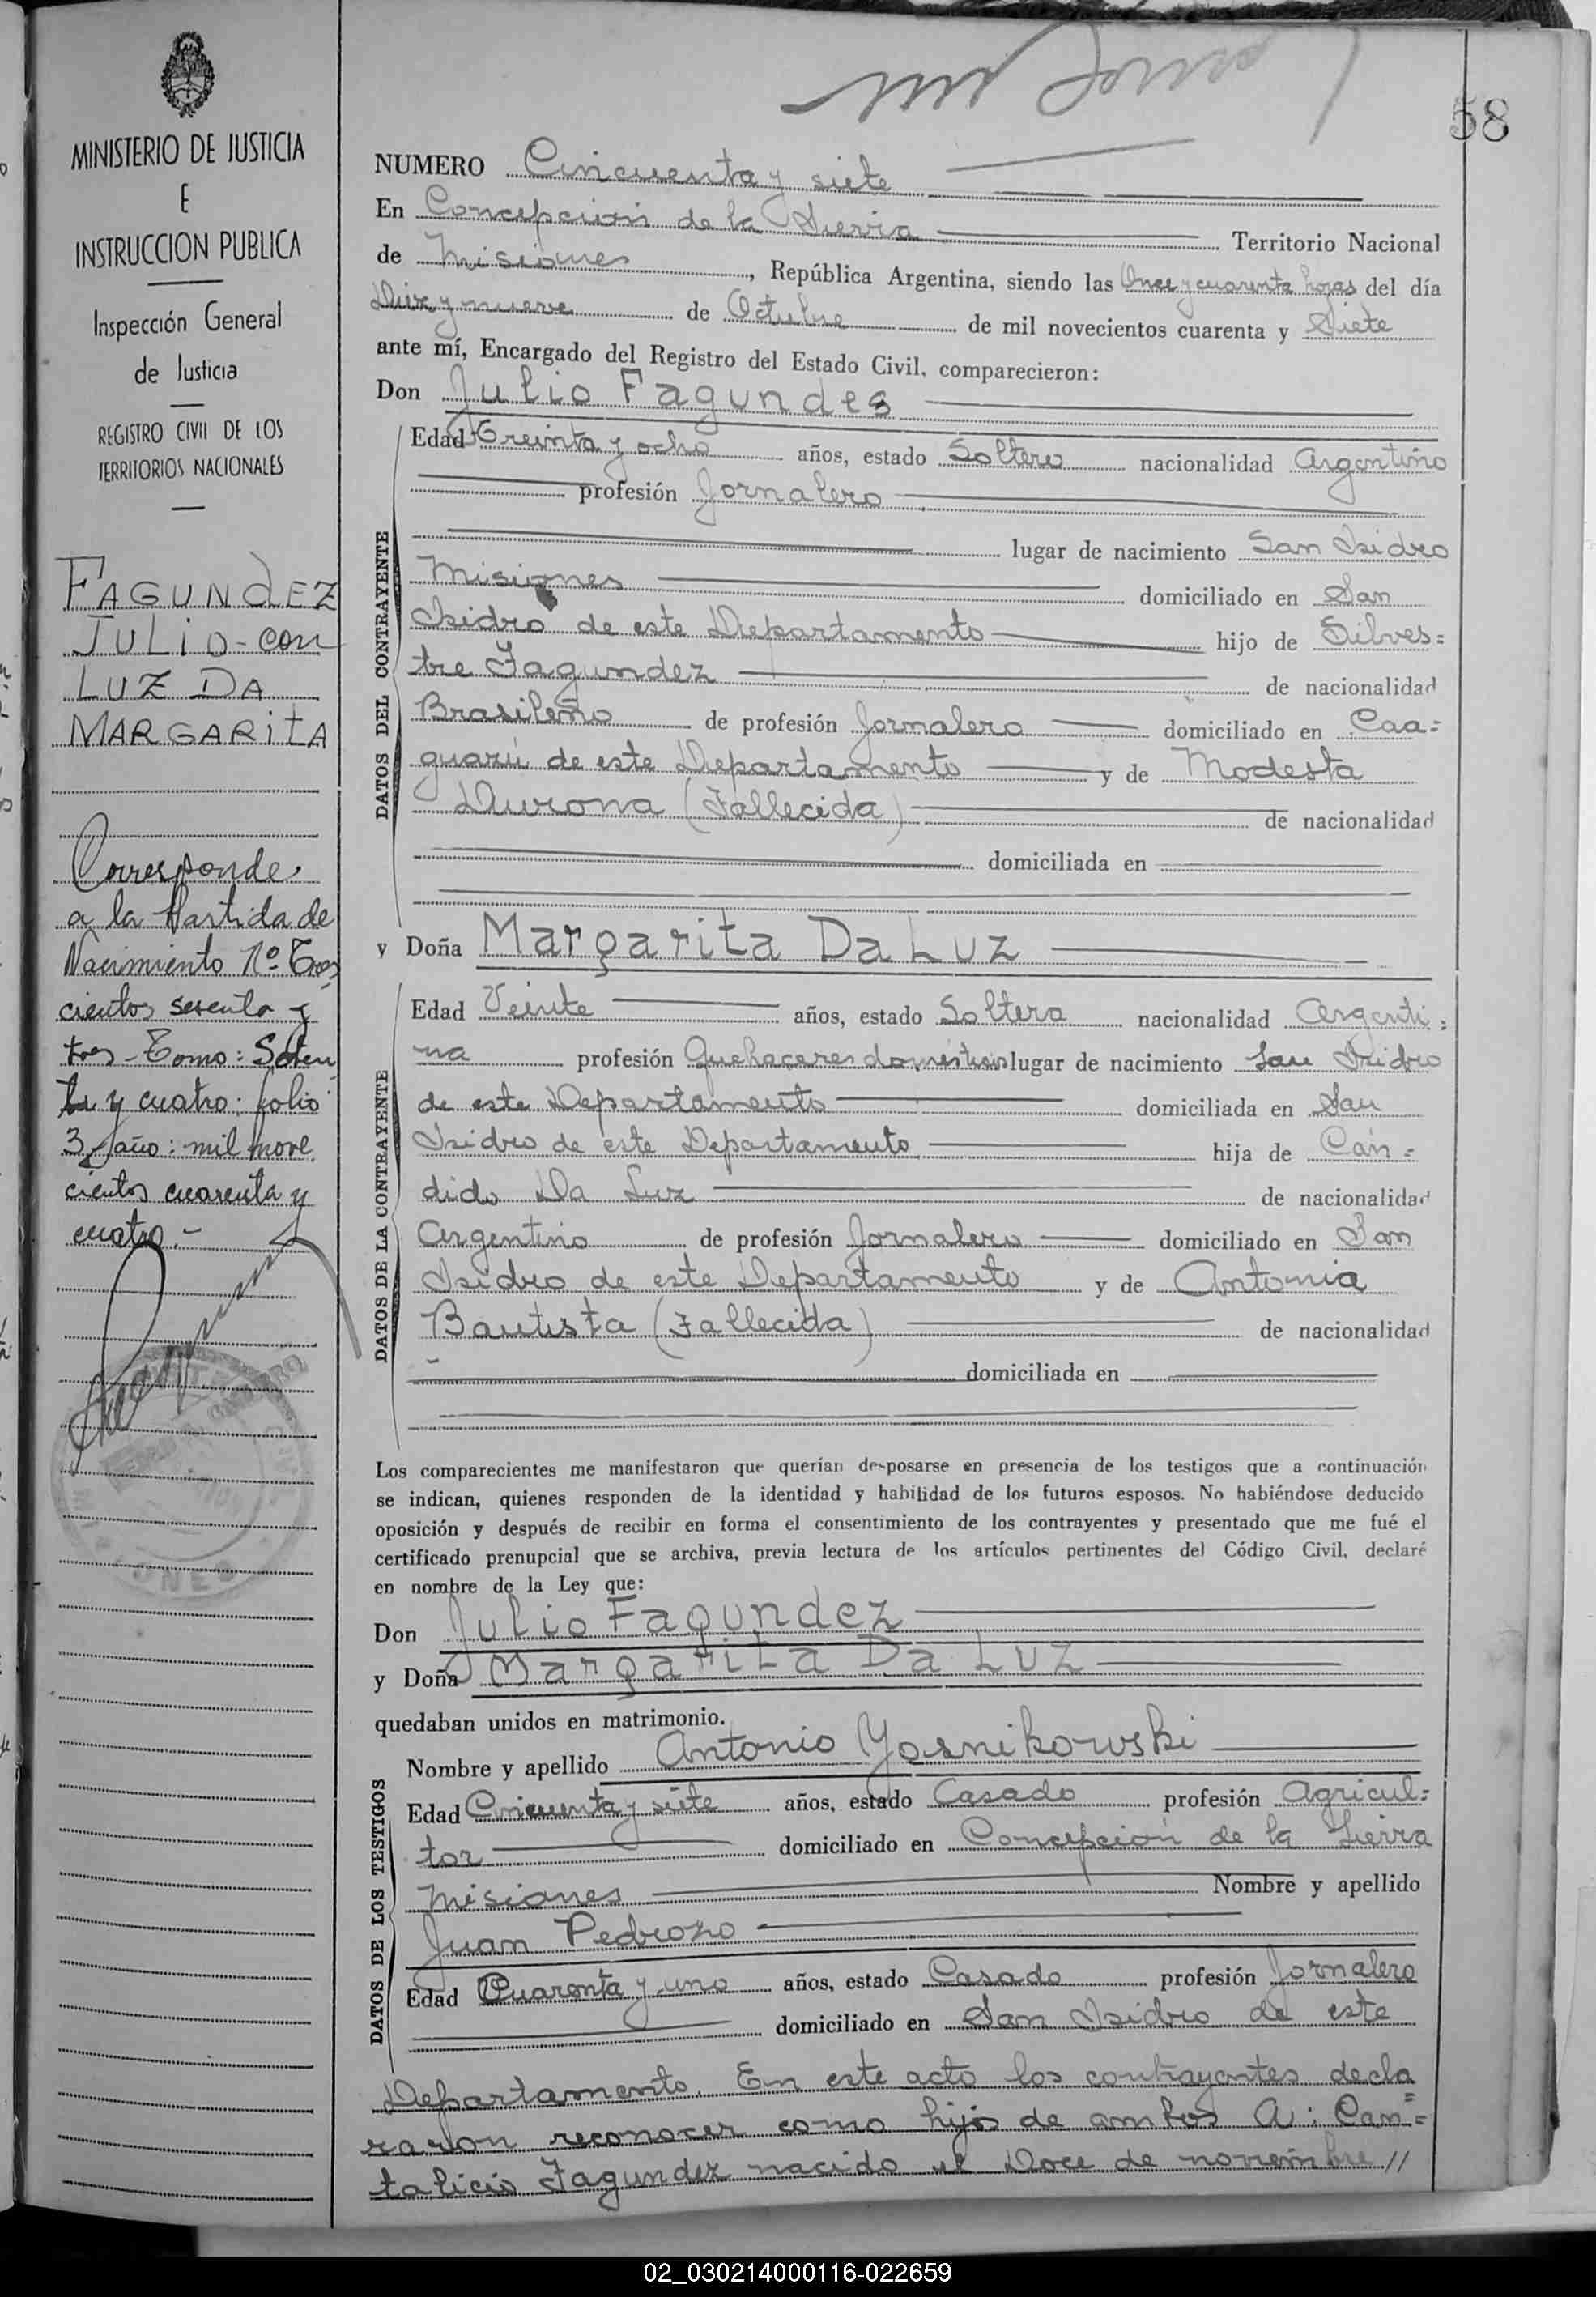 58
MINISTERIO DE JUSTICIA
E
INSTRUCCION PUBLICA
Inspección General
de Justicia
REGISTRO CIVIL DE LOS
TERRITORIOS NACIONALES
FAGUNDEZ
JULIO - con
LUZ DA
MARGARITA
Corresponde
a la Partida de
Nacimiento Nº Tres
cientos sesenta y
tres - Tomo: Seten
ta y cuatro: folio
3 año: mil nove
cientos cuarenta y
cuatro.-
NUMERO Cincuenta y siete
En Concepción de la Sierra Territorio Nacional
de Misiones, República Argentina, siendo las Once y cuarenta horas del día
Diez y nueve de Octubre de mil novecientos cuarenta y Siete
ante mí, Encargado del Registro del Estado Civil, comparecieron:
Don Julio Fagundes
DATOS DEL CONTRAYENTE
Edad Treinta y ocho años, estado Soltero nacionalidad Argentino
profesión Jornalero
lugar de nacimiento San Isidro
Misiones domiciliado en San
Isidro de este Departamento hijo de Silves=
tre Fagundez de nacionalidad
Brasileño de profesión Jornalero domiciliado en Caa=
guazú de este Departamento y de Modesta
Durona (Fallecida) de nacionalidad
domiciliada en
y Doña Margarita Da Luz
DATOS DE LA CONTRAYENTE
Edad Veinte años, estado Soltera nacionalidad Argenti=
na profesión Quehaceres domésticos lugar de nacimiento San Isidro
de este Departamento domiciliada en San
Isidro de este Departamento hija de Cán=
dido Da Luz de nacionalidad
Argentino de profesión Jornalero domiciliado en San
Isidro de este Departamento y de Antonia
Bautista (Fallecida) de nacionalidad
domiciliada en
Los comparecientes me manifestaron que querían desposarse en presencia de los testigos que a continuación
se indican, quienes responden de la identidad y habilidad de los futuros esposos. No habiéndose deducido
oposición y después de recibir en forma el consentimiento de los contrayentes y presentado que me fué el
certificado prenupcial que se archiva, previa lectura de los artículos pertinentes del Código Civil, declaré
en nombre de la Ley que:
Don Julio Fagundez
y Doña Margarita Da Luz
quedaban unidos en matrimonio.
DATOS DE LOS TESTIGOS
Nombre y apellido Antonio Yasnikowski
Edad Cincuenta y siete años, estado Casado profesión Agricul=
tor domiciliado en Concepción de la Sierra
Misiones Nombre y apellido
Juan Pedrozo
Edad Cuarenta y uno años, estado Casado profesión Jornalero
domiciliado en San Isidro de este
Departamento. En este acto los contrayentes decla=
raron reconocer como hijos de ambos A: Can=
talicio Fagundez nacido el Doce de noviembre //
02_030214000116-022659